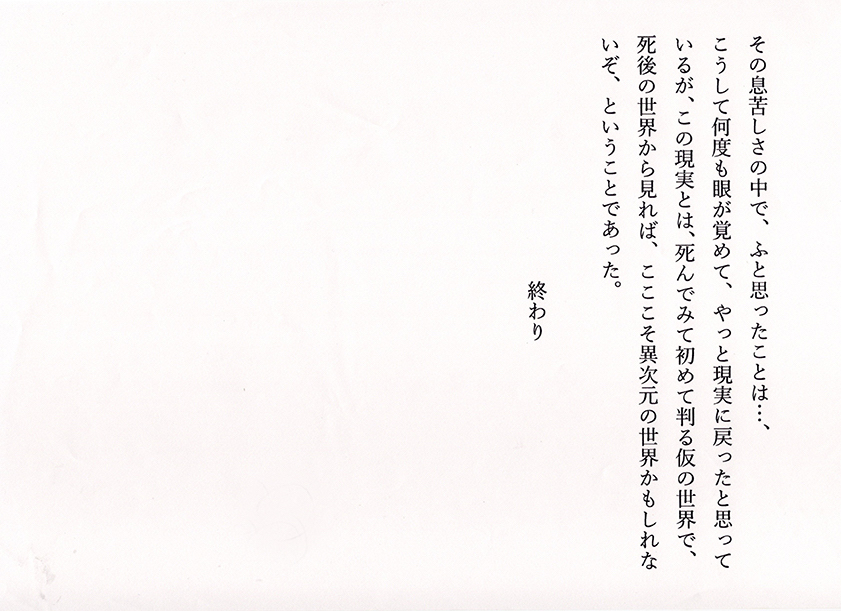 その息苦しさの中で、ふと思ったことは…、
こうして何度も眼が覚めて、やっと現実に戻ったと思って
いるが、この現実とは、死んでみて初めて判る仮の世界で、
死後の世界から見れば、ここここそ異次元の世界かもしれな
いぞ、ということであった。
終わり